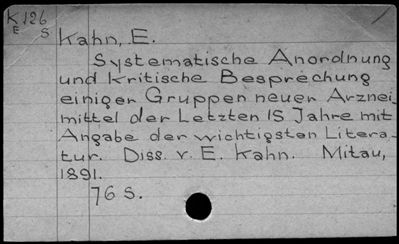 K 126
E S
Kahn, E.
Systematische Anordnung
und kritische Besprechung
einiger Gruppen neuer Arznei-
mittel der Letzten 15 Jahre mit
Angabe der wichtigsten Litera-
tur. Diss. v. E. Kahn. Mitau,
1891.
76 S.